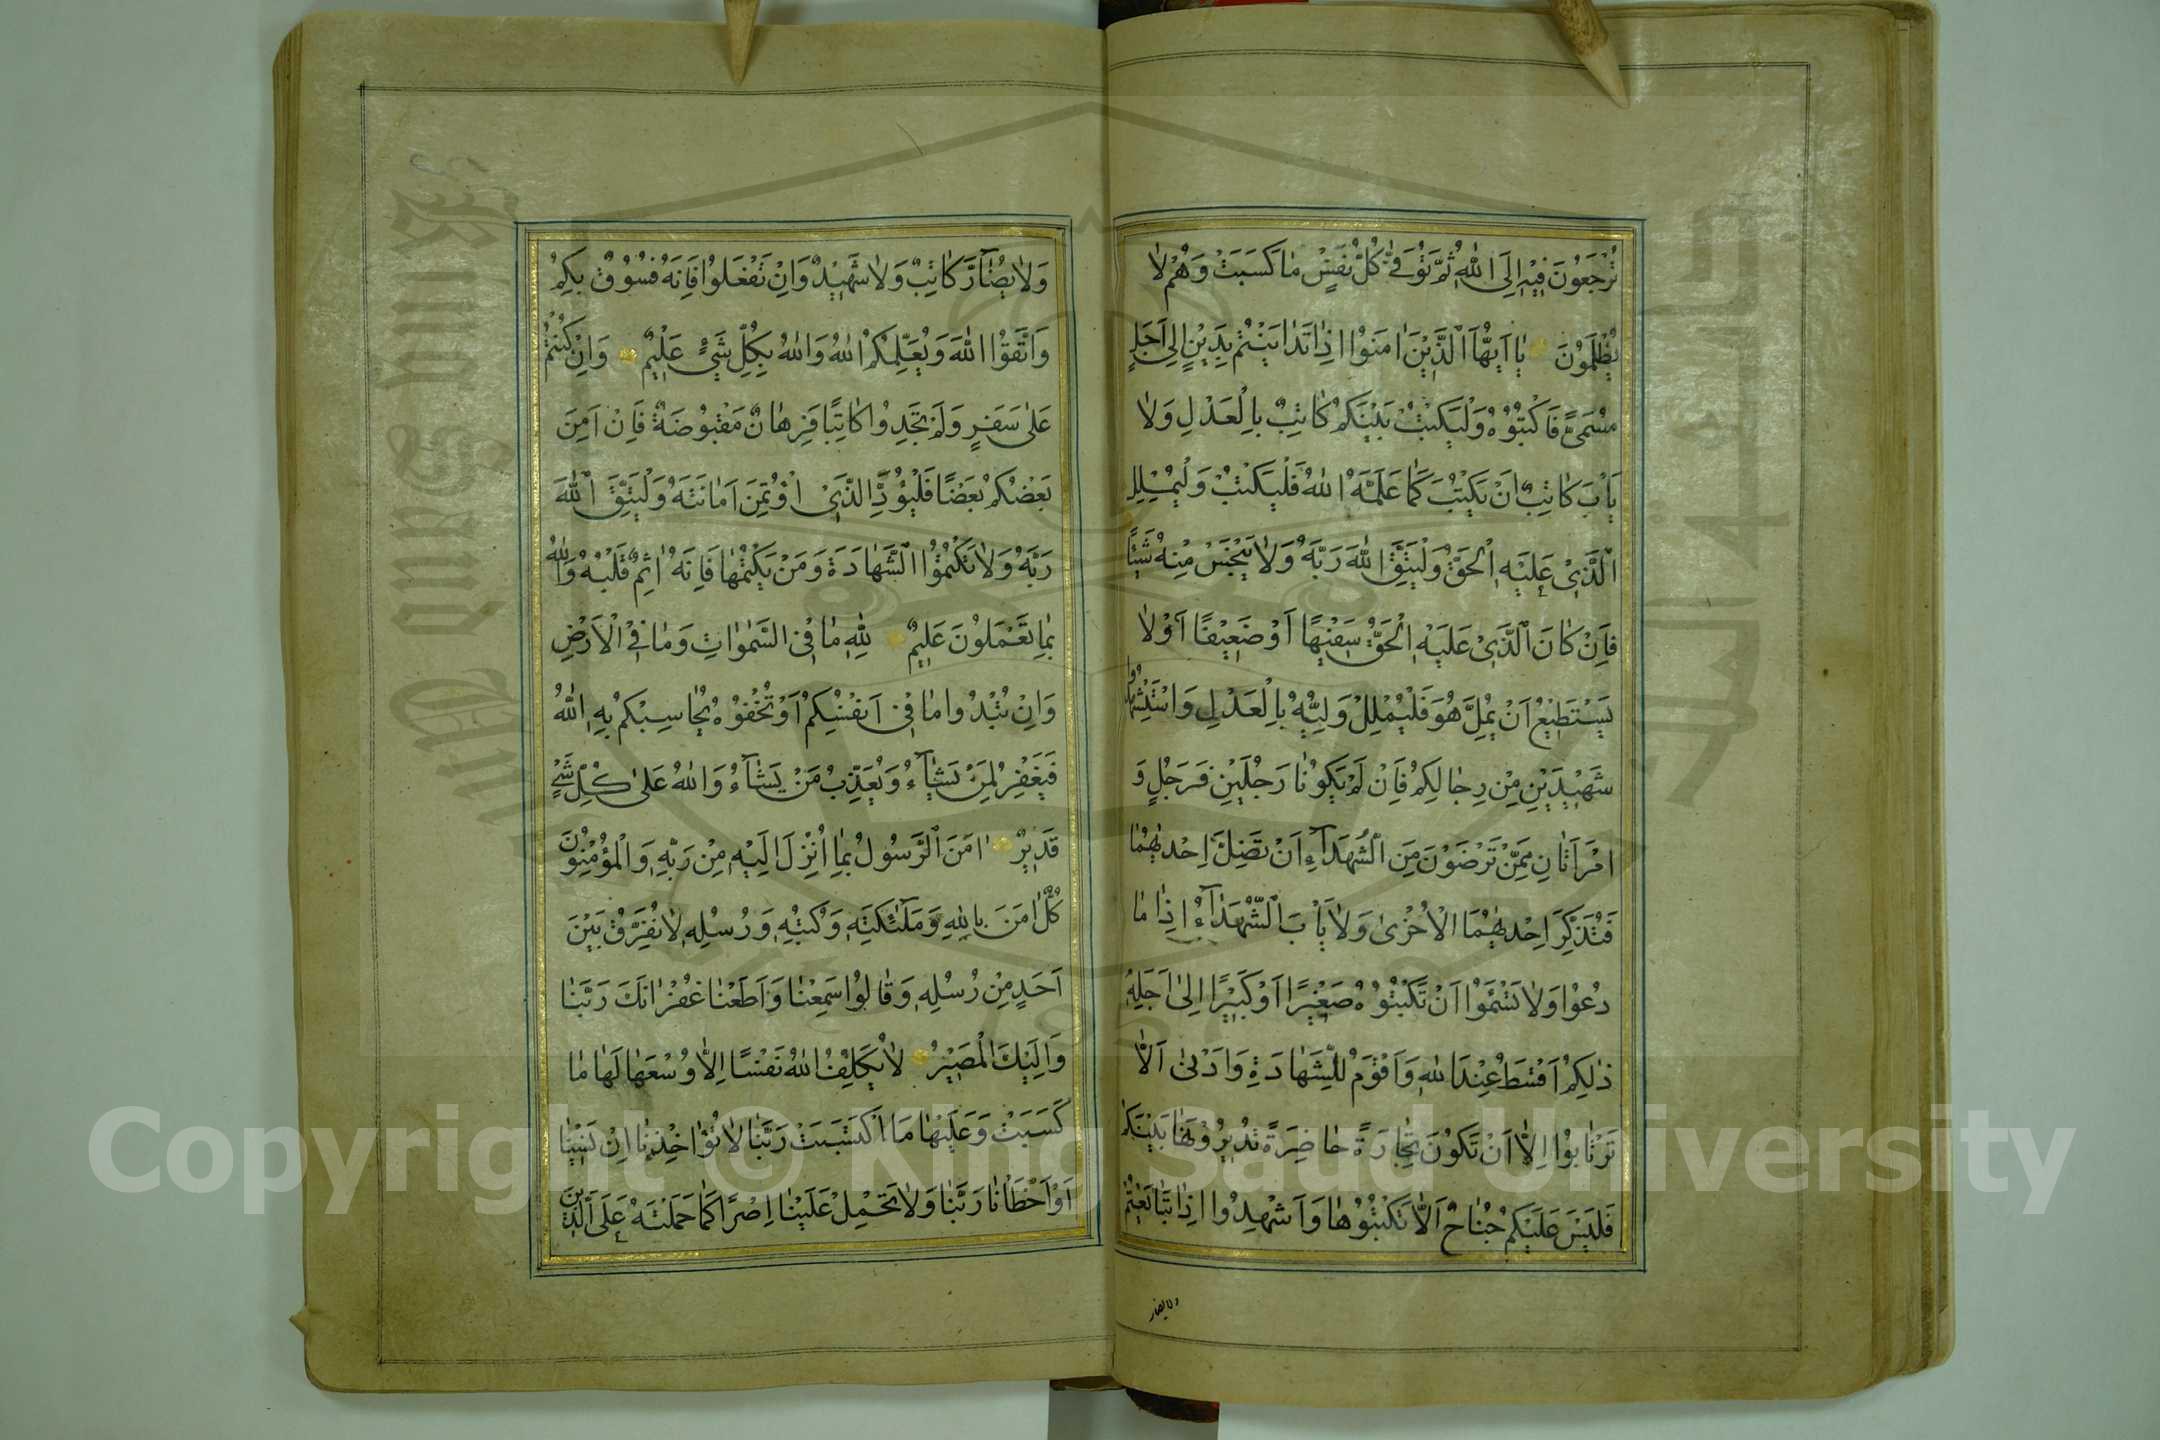 تُرْجَعُونَ فِيْهِ اِلَى اللّٰهِ ثُمَّ تُوَفّٰى كُلُّ نَفْسٍ مَا كَسَبَتْ وَهُمْ لَا
يُظْلَمُونَ يَا اَيُّهَا الَّذِيْنَ اٰمَنُوا اِذَا تَدَايَنْتُمْ بِدَيْنٍ اِلٰى اَجَلٍ
مُسَمًّى فَاكْتُبُوْهُ وَلْيَكْتُبْ بَيْنَكُمْ كَاتِبٌ بِالْعَدْلِ وَلَا
يَأْبَ كَاتِبٌ اَنْ يَكْتُبَ كَمَا عَلَّمَهُ اللّٰهُ فَلْيَكْتُبْ وَلْيُمْلِلِ
الَّذِيْ عَلَيْهِ الْحَقُّ وَلْيَتَّقِ اللّٰهَ رَبَّهُ وَلَا يَبْخَسْ مِنْهُ شَيْئًا
فَاِنْ كَانَ الَّذِيْ عَلَيْهِ الْحَقُّ سَفِيْهًا اَوْ ضَعِيْفًا اَوْ لَا
يَسْتَطِيْعُ اَنْ يُمِلَّ هُوَ فَلْيُمْلِلْ وَلِيُّهُ بِالْعَدْلِ وَاسْتَشْهِدُوا
شَهِيْدَيْنِ مِنْ رِجَالِكُمْ فَاِنْ لَمْ يَكُوْنَا رَجُلَيْنِ فَرَجُلٌ وَ
امْرَاَتَانِ مِمَّنْ تَرْضَوْنَ مِنَ الشُّهَدَآءِ اَنْ تَضِلَّ اِحْدٰيهُمَا
فَتُذَكِّرَ اِحْدٰيهُمَا الْاُخْرٰى وَلَا يَأْبَ الشُّهَدَآءُ اِذَا مَا
دُعُوْا وَلَا تَسْئَمُوْا اَنْ تَكْتُبُوْهُ صَغِيْرًا اَوْ كَبِيْرًا اِلٰى اَجَلِهِ
ذٰلِكُمْ اَقْسَطُ عِنْدَ اللّٰهِ وَاَقْوَمُ لِلشَّهَادَةِ وَاَدْنٰى اَلَّا
تَرْتَابُوْا اِلَّا اَنْ تَكُوْنَ تِجَارَةً حَاضِرَةً تُدِيْرُوْنَهَا بَيْنَكُمْ
فَلَيْسَ عَلَيْكُمْ جُنَاحٌ اَلَّا تَكْتُبُوْهَا وَاَشْهِدُوا اِذَا تَبَايَعْتُمْ
ولا يضار
وَلَا يُضَآرَّ كَاتِبٌ وَلَا شَهِيْدٌ وَاِنْ تَفْعَلُوا فَاِنَّهُ فُسُوْقٌ بِكُمْ
وَاتَّقُوا اللّٰهَ وَيُعَلِّمُكُمُ اللّٰهُ وَاللّٰهُ بِكُلِّ شَيْءٍ عَلِيْمٌ وَاِنْ كُنْتُمْ
عَلٰى سَفَرٍ وَلَمْ تَجِدُوا كَاتِبًا فَرِهَانٌ مَقْبُوْضَةٌ فَاِنْ اَمِنَ
بَعْضُكُمْ بَعْضًا فَلْيُؤَدِّ الَّذِي اؤْتُمِنَ اَمَانَتَهُ وَلْيَتَّقِ اللّٰهَ
رَبَّهُ وَلَا تَكْتُمُوا الشَّهَادَةَ وَمَنْ يَكْتُمْهَا فَاِنَّهُ اٰثِمٌ قَلْبُهُ وَاللّٰهُ
بِمَا تَعْمَلُوْنَ عَلِيْمٌ لِلّٰهِ مَا فِي السَّمٰوَاتِ وَمَا فِي الْاَرْضِ
وَاِنْ تُبْدُوا مَا فِيْ اَنْفُسِكُمْ اَوْ تُخْفُوْهُ يُحَاسِبْكُمْ بِهِ اللّٰهُ
فَيَغْفِرُ لِمَنْ يَشَآءُ وَيُعَذِّبُ مَنْ يَشَآءُ وَاللّٰهُ عَلٰى كُلِّ شَيْءٍ
قَدِيْرٌ اٰمَنَ الرَّسُولُ بِمَا اُنْزِلَ اِلَيْهِ مِنْ رَبِّهِ وَالْمُؤْمِنُوْنَ
كُلٌّ اٰمَنَ بِاللّٰهِ وَمَلٰٓئِكَتِهِ وَكُتُبِهِ وَرُسُلِهِ لَا نُفَرِّقُ بَيْنَ
اَحَدٍ مِنْ رُسُلِهِ وَقَالُوا سَمِعْنَا وَاَطَعْنَا غُفْرَانَكَ رَبَّنَا
وَاِلَيْكَ الْمَصِيْرُ لَا يُكَلِّفُ اللّٰهُ نَفْسًا اِلَّا وُسْعَهَا لَهَا مَا
كَسَبَتْ وَعَلَيْهَا مَا اكْتَسَبَتْ رَبَّنَا لَا تُؤَاخِذْنَا اِنْ نَسِيْنَا
اَوْ اَخْطَأْنَا رَبَّنَا وَلَا تَحْمِلْ عَلَيْنَا اِصْرًا كَمَا حَمَلْتَهُ عَلَى الَّذِيْنَ
Copyright © King Saud University